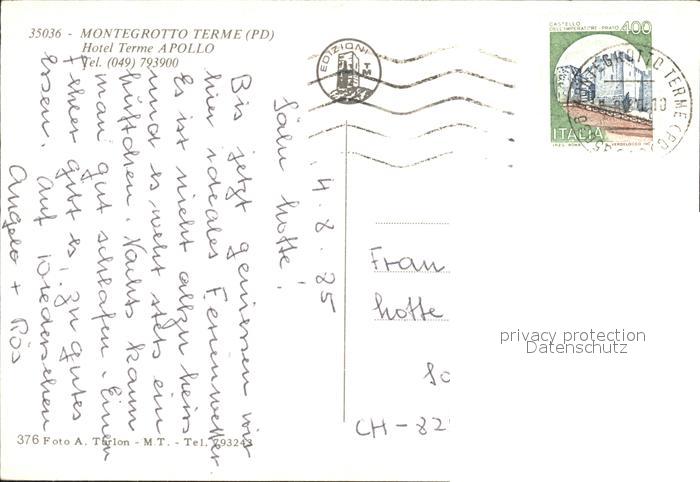 35036 - MONTEGROTTO TERME (PD)
Hotel Terme APOLLO
Tel. (049) 793900
EDIZIONI
TM
CASTELLO
DELL'IMPERATORE - PRATO
400
ITALIA
MONTEGROTTO TERME (PD)
4.8.85
Salü Lotte!
Bis jetzt geniessen wir
hier ideales Ferienwetter
Es ist nicht allzu heiss
und es weht stets ein
Lüftchen. Nachts kann
man gut schlafen. Einen
Fehler gibt es, zu gutes
Essen. Auf Wiedersehen
Angelo + Rös
Frau
Lotte
CH-82
privacy protection
Datenschutz
376 Foto A. Turlon - M.T. - Tel. 793243